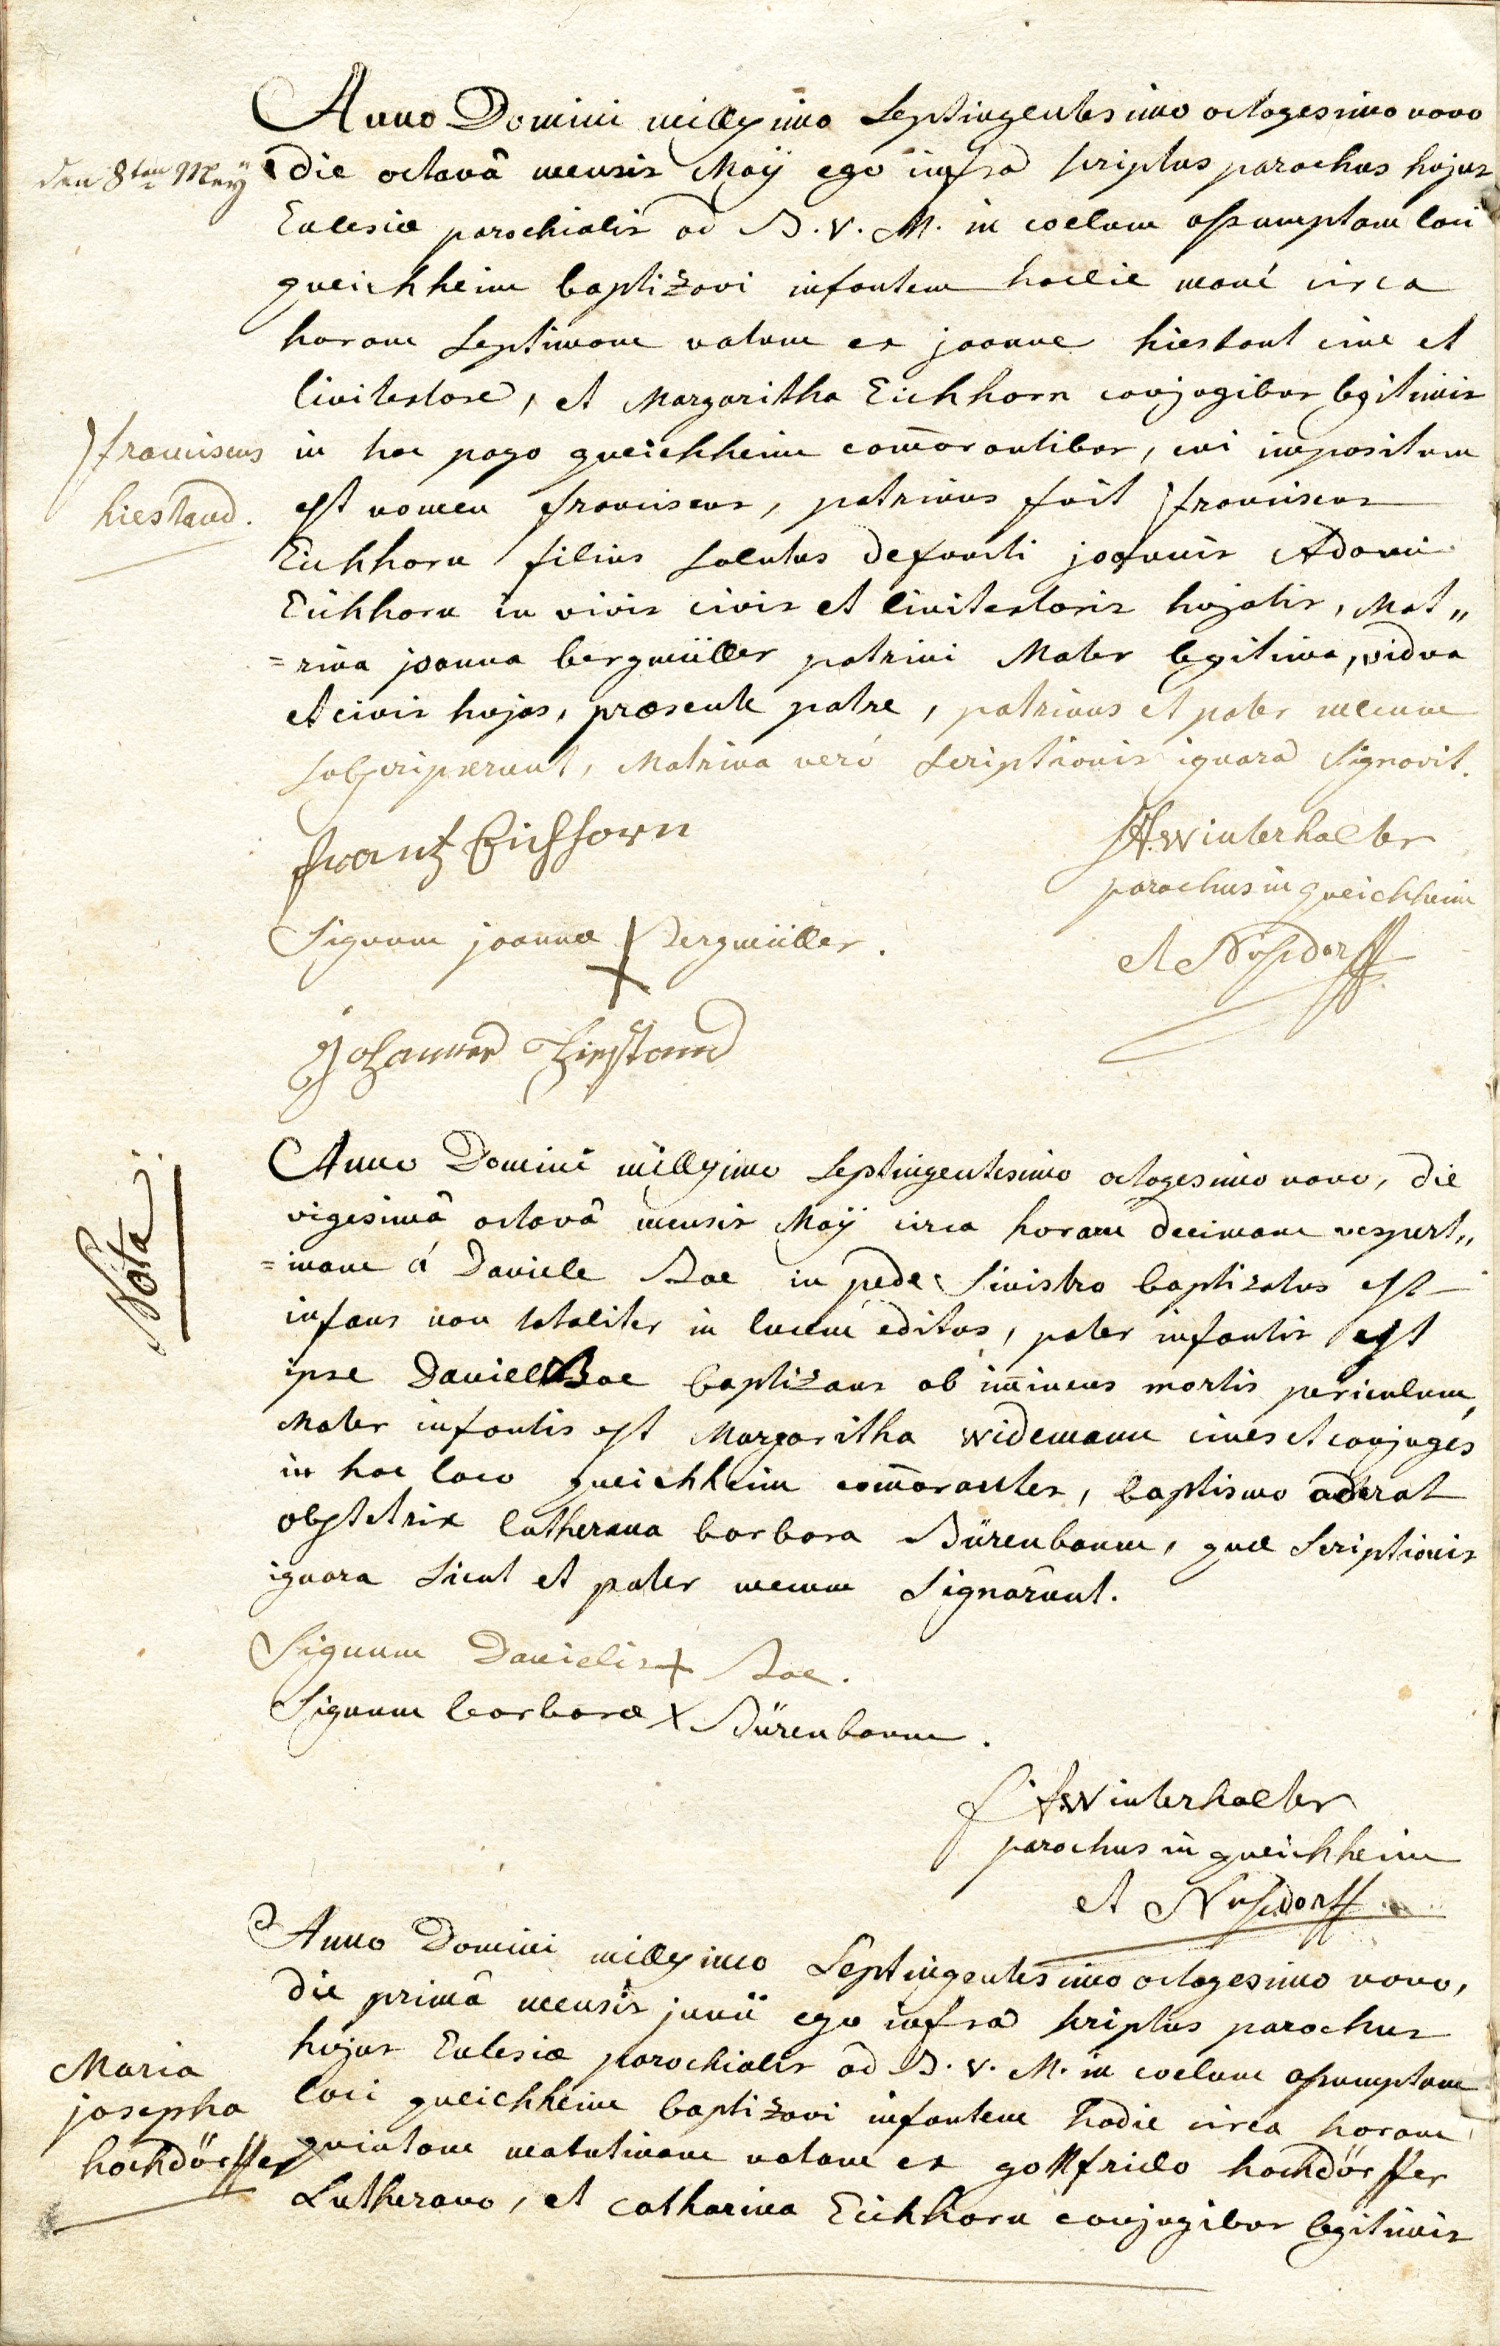 Anno Domini millesimo Septingentesimo octogesimo nono
den 8ten Mey
die octavâ mensis Maÿ ego infra scriptus parochus hujus
Eclesiæ parochialis ad B. V. M. in coelum assumptam loci
queichheim baptizavi infantem hodie mané circa
horam Septimam natum ex joanne hiestant cive et
linitextore, et Margaritha Eichhorn conjugibus legitimis
franciscus
hiestand.
in hoc pago queichheim com̄orantibus, cui impositum
est nomen franciscus, patrinus fuit franciscus
Eichhorn filius solutus defuncti joannis Adami
Eichhorn in vivis civis et linitextoris hujatis, Mat„
=rina joanna bergmüller patrini Mater legitima, vidua
et civis hujas, præsente patre, patrinus et pater mecum
subscripserunt, Matrina veró Scriptionis ignara Signavit.
frantz Eichhorn
Signum joannæ + Bergmüller.
Johannes Hiestand
Winterhalter
parochus in queichheim
et Nusdorff
Nota:
Anno Domini millesimo Septingentesimo octogesimo nono, die
vigesimâ octavâ mensis Maÿ circa horam decimam vespert„
=inam á Daniele Bae in pede Sinistro baptizatus est
infans non totaliter in lucem editus, pater infantis est
ipse Daniel Bae baptizans ob im̄inens mortis periculum,
Mater infantis est Margaritha Widemann cives et conjuges
in hoc loco queichheim com̄orantes, baptismo aderat
obstetrix lutherana barbara Bürenbaum, quæ Scriptionis
ignara Sicut et pater mecum Signarunt.
Signum Danielis + Bae.
Signum barbaræ X Bürenbaum.
Winterhalter
parochus in queichheim
et Nusdorff
Anno Domini millesimo Septingentesimo octogesimo nono,
die primâ mensis junii ego infra scriptus parochus
hujus Eclesiæ parochialis ad B. V. M. in coelum assumptam
Maria
josepha
hochdörffer
loci queichheim baptizavi infantem hodie circa horam
quintam matutinam natam ex gottfrido hochdörffer
Lutherano, et catharina Eichhorn conjugibus legitimis